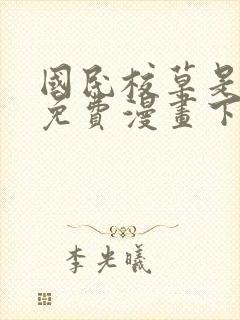 國民校草是
免費漫畫下
李光曦